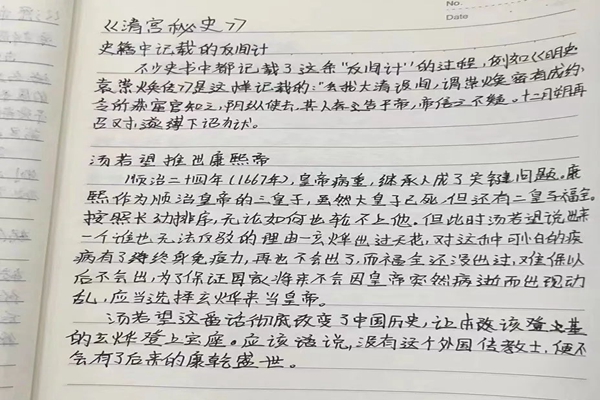 No.
Date
《清宫秘史》
史籍中记载的反间计
不少史书中都记载了这条"反间计"的过程,例如《明史
袁崇焕传》是这样记载的:"会我大清设间,谓崇焕密有成约,
令所获宦官知之,阴纵使去。其人奔告于帝,帝信之不疑。十二月朔再
召对,遂缚下诏狱。
汤若望推出康熙帝
顺治二十四年(1667年),皇帝病重,继承人成了关键问题。康
熙作为顺治皇帝的三皇子,虽然大皇子已死,但还有二皇子福全。
按照长幼排序,无论如何也轮不上他。但此时汤若望说出来
一个谁也无法反驳的理由—玄烨出过天花,对这种可怕的疾
病有了终身免疫力,再也不会出了,而福全还没出过,难保以
后不会出,为了保证国家将来不会因皇帝突然病逝而出现动
乱,应当选择玄烨来当皇帝。
汤若望这番话彻底改变了中国历史,让本不该登上基
的玄烨登上宝座。应该说,没有这个外国传教士,便不
会有了后来的康乾盛世。